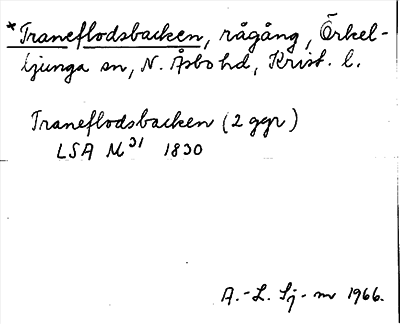 *Traneflodsbacken, rågång, Örkel-
ljunga sn, N. Åsbo hd, Krist. l.
Traneflodsbacken (2 ggr)
LSA M31 1830
A.-L. Sj-m 1966.